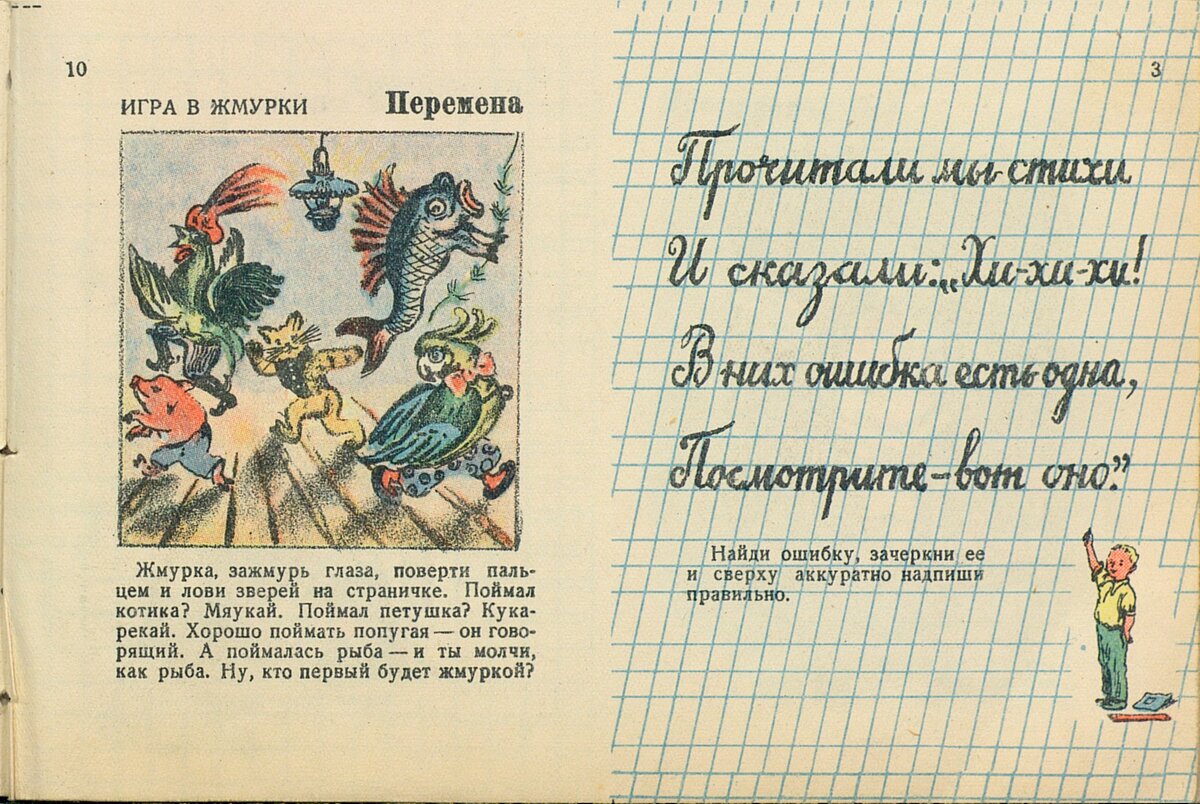 10
ИГРА В ЖМУРКИ Перемена
Жмурка, зажмурь глаза, поверти паль-
цем и лови зверей на страничке. Поймал
котика? Мяукай. Поймал петушка? Кука-
рекай. Хорошо поймать попугая — он гово-
рящий. А поймалась рыба — и ты молчи,
как рыба. Ну, кто первый будет жмуркой?
3
Прочитали мы стихи
И сказали: „Хи-хи-хи!
В них ошибка есть одна,
Посмотрите — вот оно."
Найди ошибку, зачеркни ее
и сверху аккуратно надпиши
правильно.